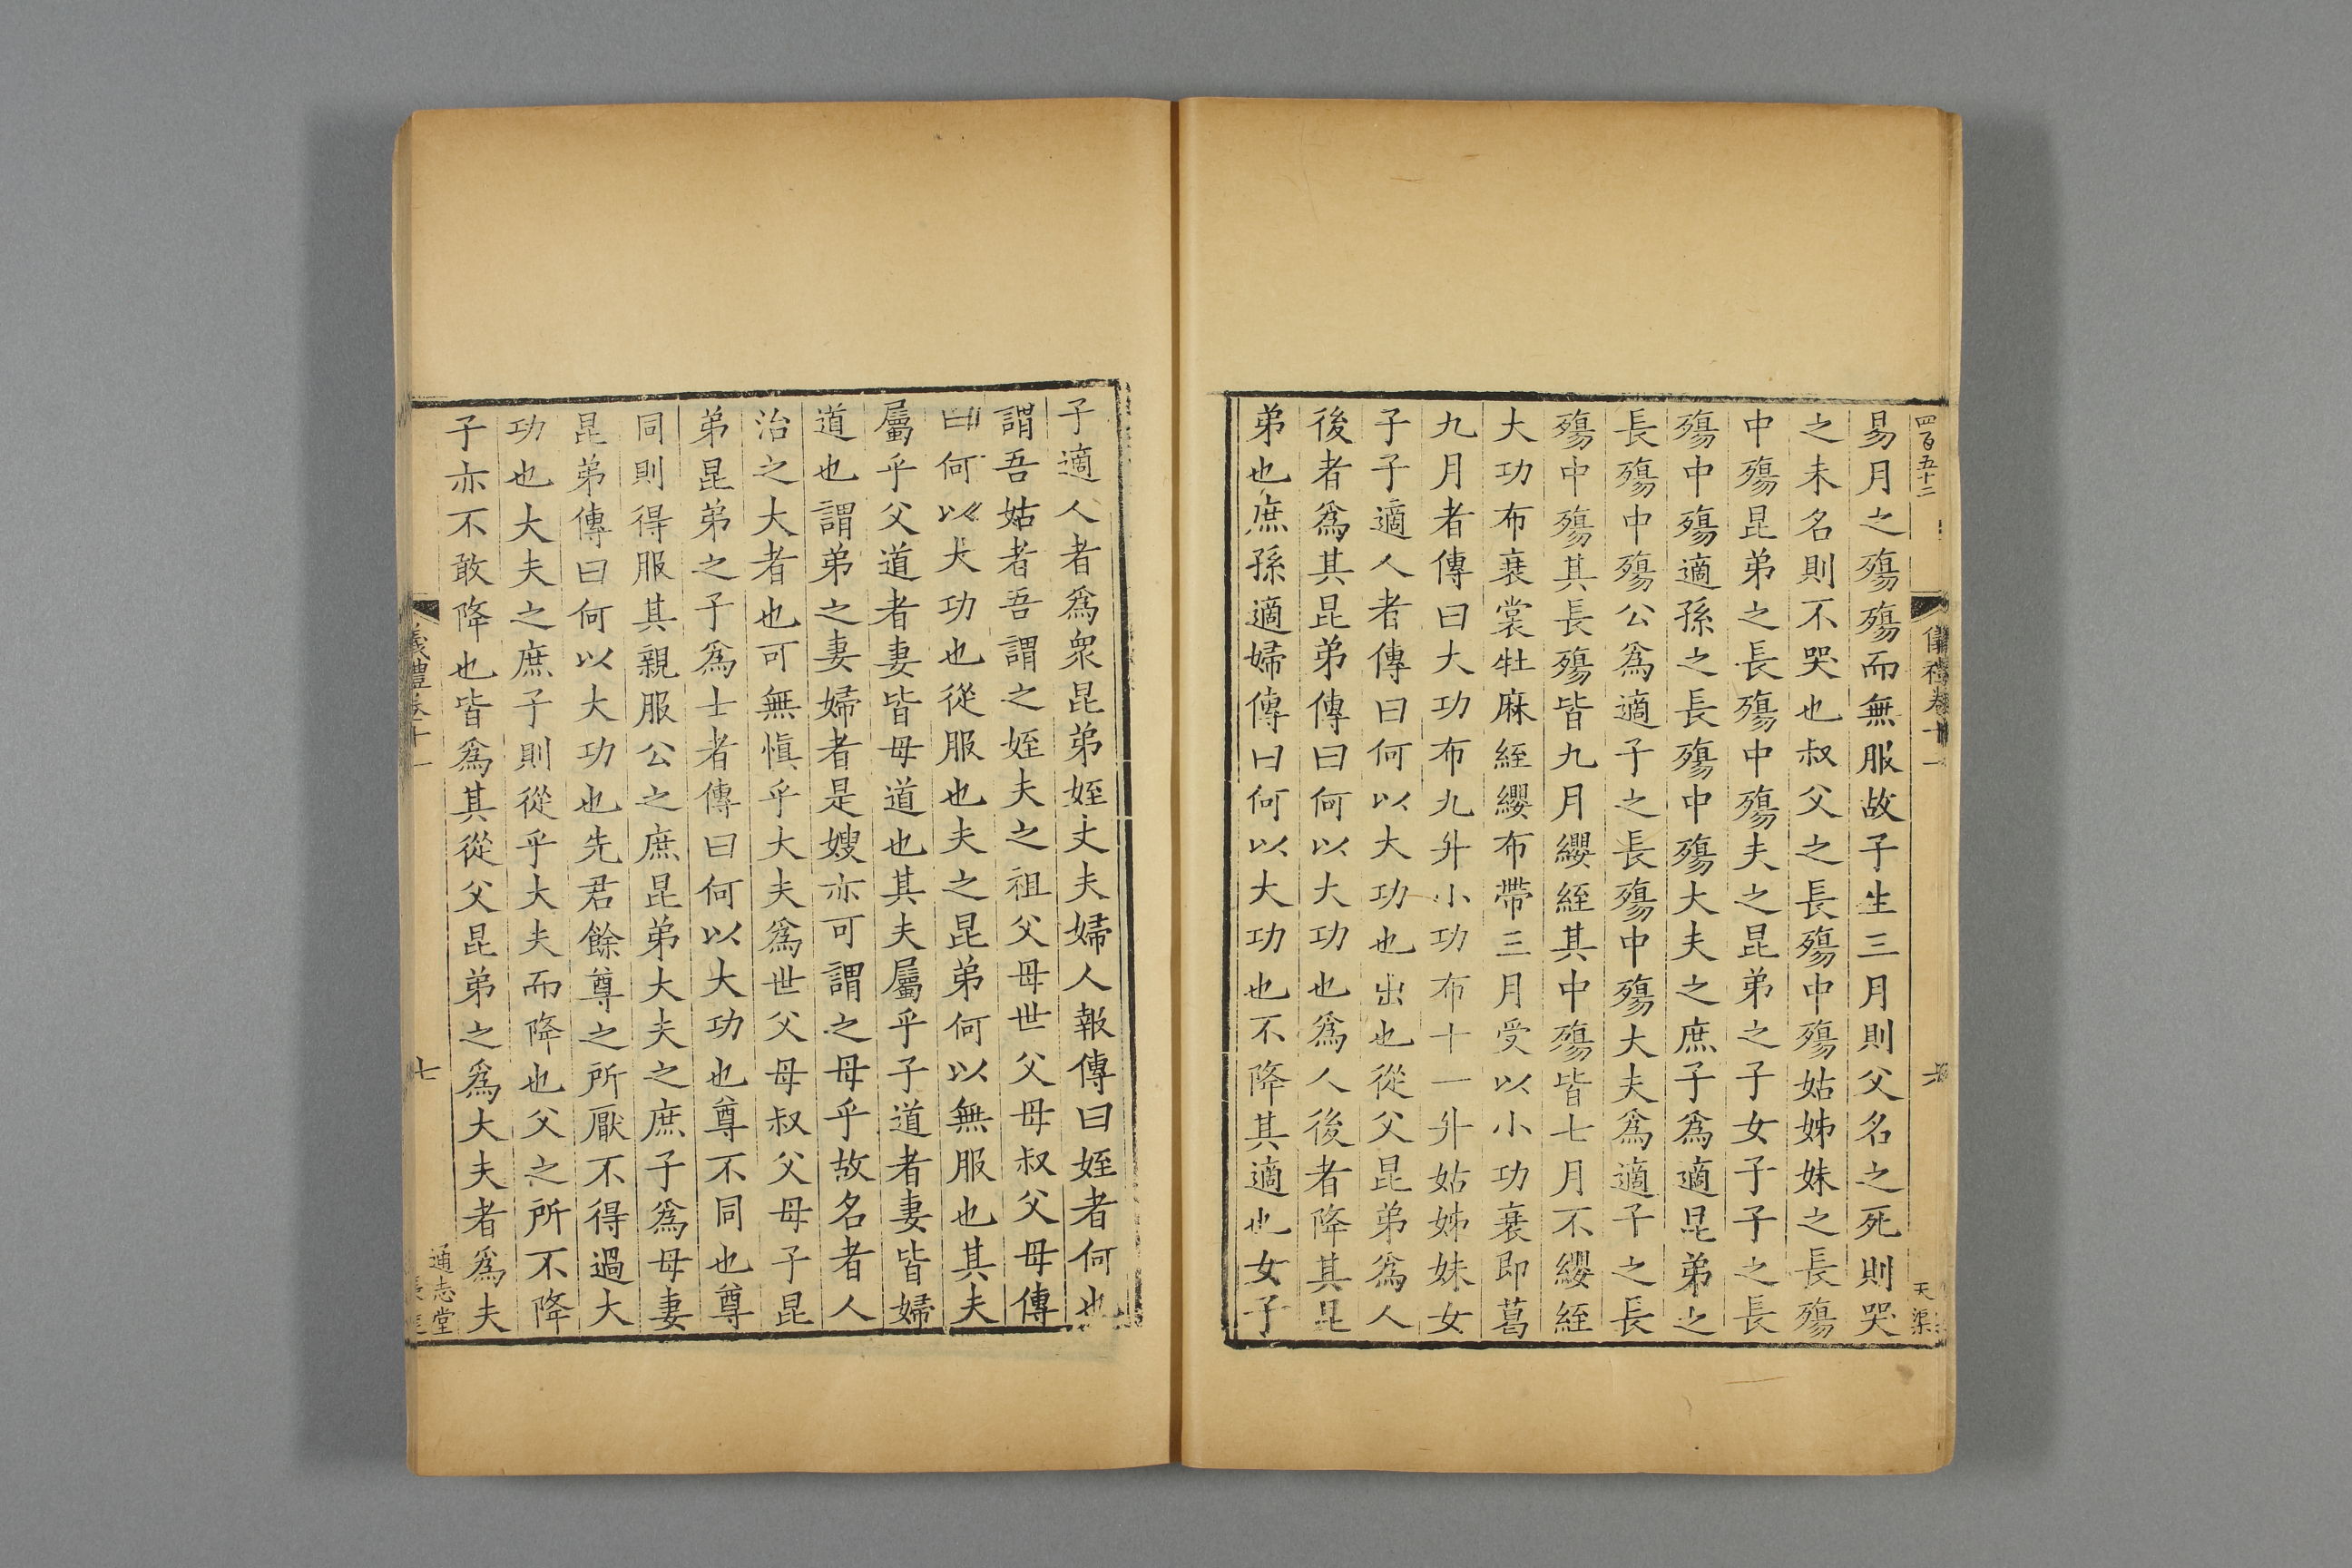 四百五十二
儀禮卷十一
六
天渠
易月之殤殤而無服故子生三月則父名之死則哭
之未名則不哭也叔父之長殤中殤姑姊妹之長殤
中殤昆弟之長殤中殤夫之昆弟之子女子子之長
殤中殤適孫之長殤中殤大夫之庶子爲適昆弟之
長殤中殤公爲適子之長殤中殤大夫爲適子之長
殤中殤其長殤皆九月纓絰其中殤皆七月不纓絰
大功布衰裳牡麻絰纓布帶三月受以小功衰即葛
九月者傳曰大功布九升小功布十一升姑姊妹女
子子適人者傳曰何以大功也出也從父昆弟爲人
後者爲其昆弟傳曰何以大功也爲人後者降其昆
弟也庶孫適婦傳曰何以大功也不降其適也女子
子適人者爲衆昆弟姪丈夫婦人報傳曰姪者何也
謂吾姑者吾謂之姪夫之祖父母世父母叔父母傳
曰何以大功也從服也夫之昆弟何以無服也其夫
屬乎父道者妻皆母道也其夫屬乎子道者妻皆婦
道也謂弟之妻婦者是嫂亦可謂之母乎故名者人
治之大者也可無愼乎大夫爲世父母叔父母子昆
弟昆弟之子爲士者傳曰何以大功也尊不同也尊
同則得服其親服公之庶昆弟大夫之庶子爲母妻
昆弟傳曰何以大功也先君餘尊之所厭不得過大
功也大夫之庶子則從乎大夫而降也父之所不降
子亦不敢降也皆爲其從父昆弟之爲大夫者爲夫
儀禮卷十一
七
通志堂